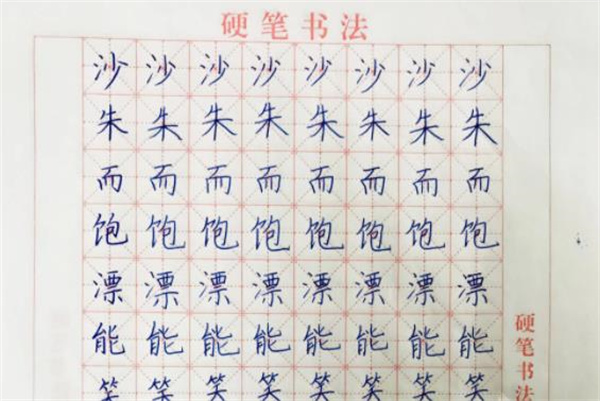 硬笔书法
沙沙沙沙沙沙沙沙
朱朱朱朱朱朱朱朱
而而而而而而而而
饱饱饱饱饱饱饱饱
漂漂漂漂漂漂漂漂
能能能能能能能能
笑笑笑笑笑笑笑笑
硬笔书法